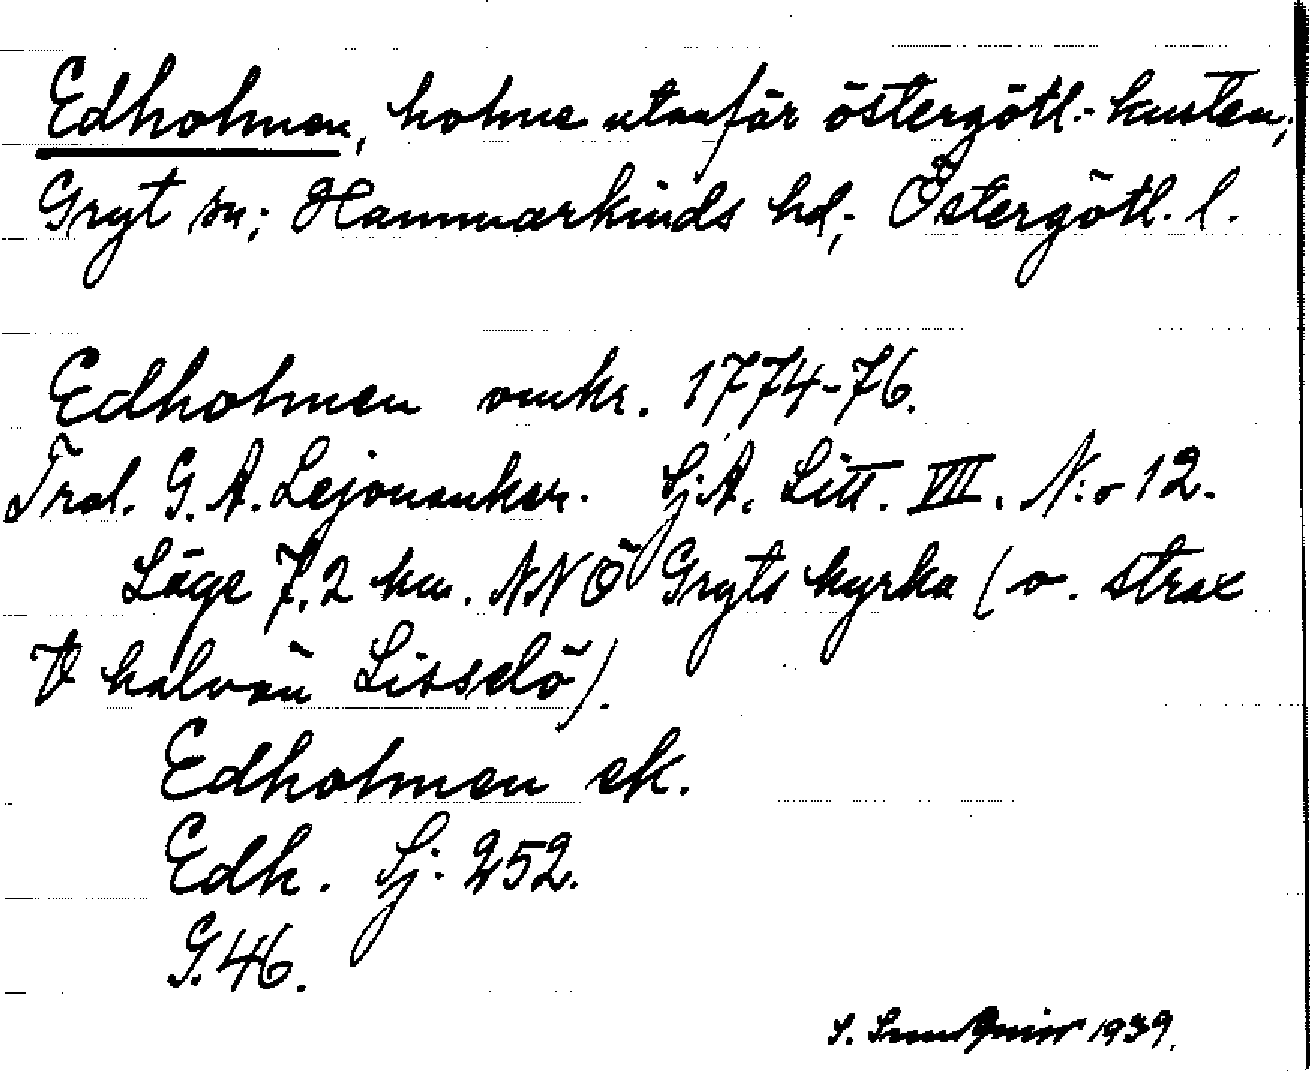 Edholmen, holme utanför östergötl.-kusten,
Gryt sn; Hammarkinds hd; Östergötl. l.
Edholmen omkr. 1774-76.
Tral. G. A. Lejonanker. Sj.A. Litt. VII. N:o 12.
Läge 7,2 km. NNÖ Gryts kyrka (o. strax
V halvön Lisselö).
Edholmen ek.
Edh. Sj. 252.
G. 46.
1939.